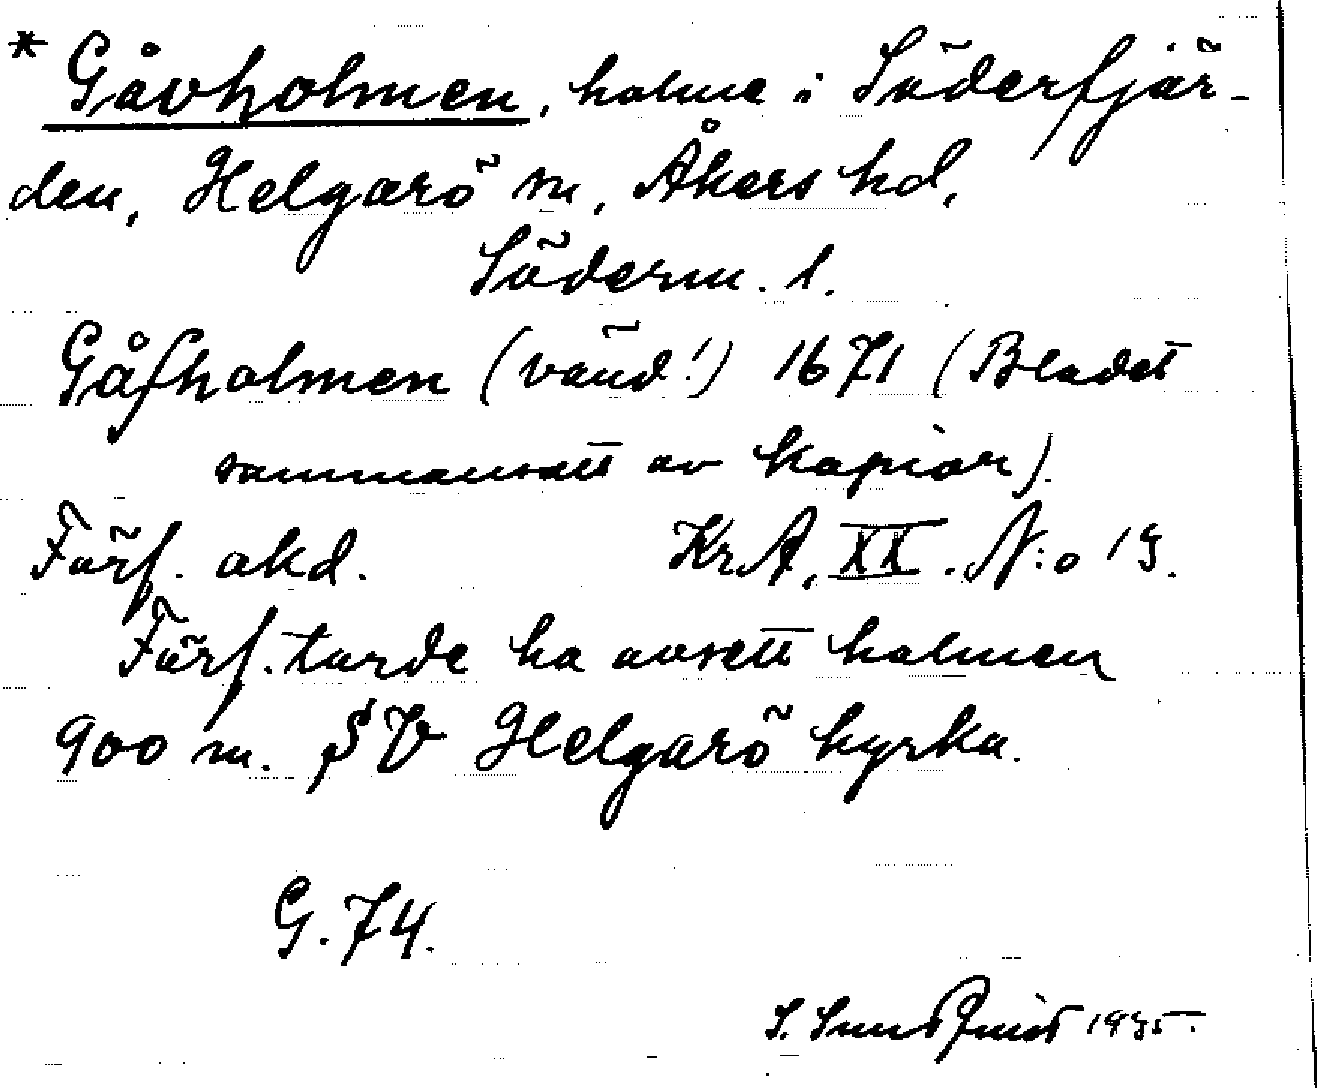 * Gåvholmen, holme i Söderfjär-
den, Helgarö sn, Åkers hd,
Söderm. l.
Gåfholmen (vänd!) 1671 (Bladet
sammansatt av kopior).
Förf. okd. KrA, XX. N:o 19.
Förf. torde ha avsett holmen
900 m. SV Helgarö kyrka.
G. 74.
S. Sundquist 1935.